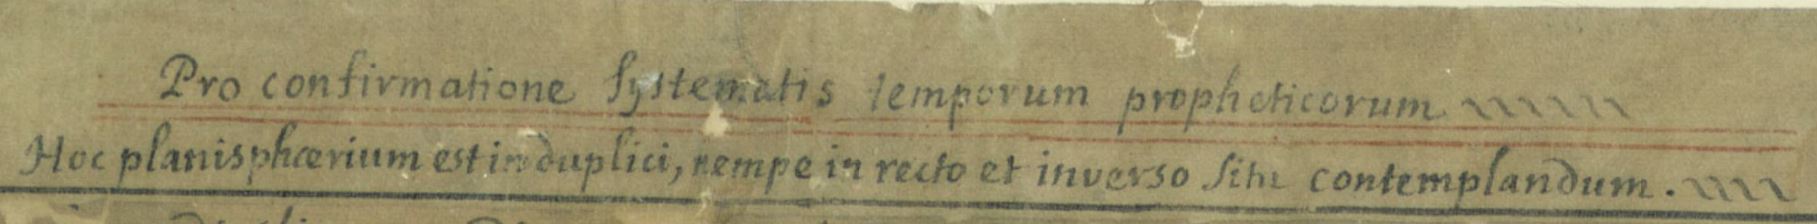 Pro confirmatione Systematis temporum propheticorum
Hoc planisphærium est in duplici, nempe in recto et inverso situ contemplandum.